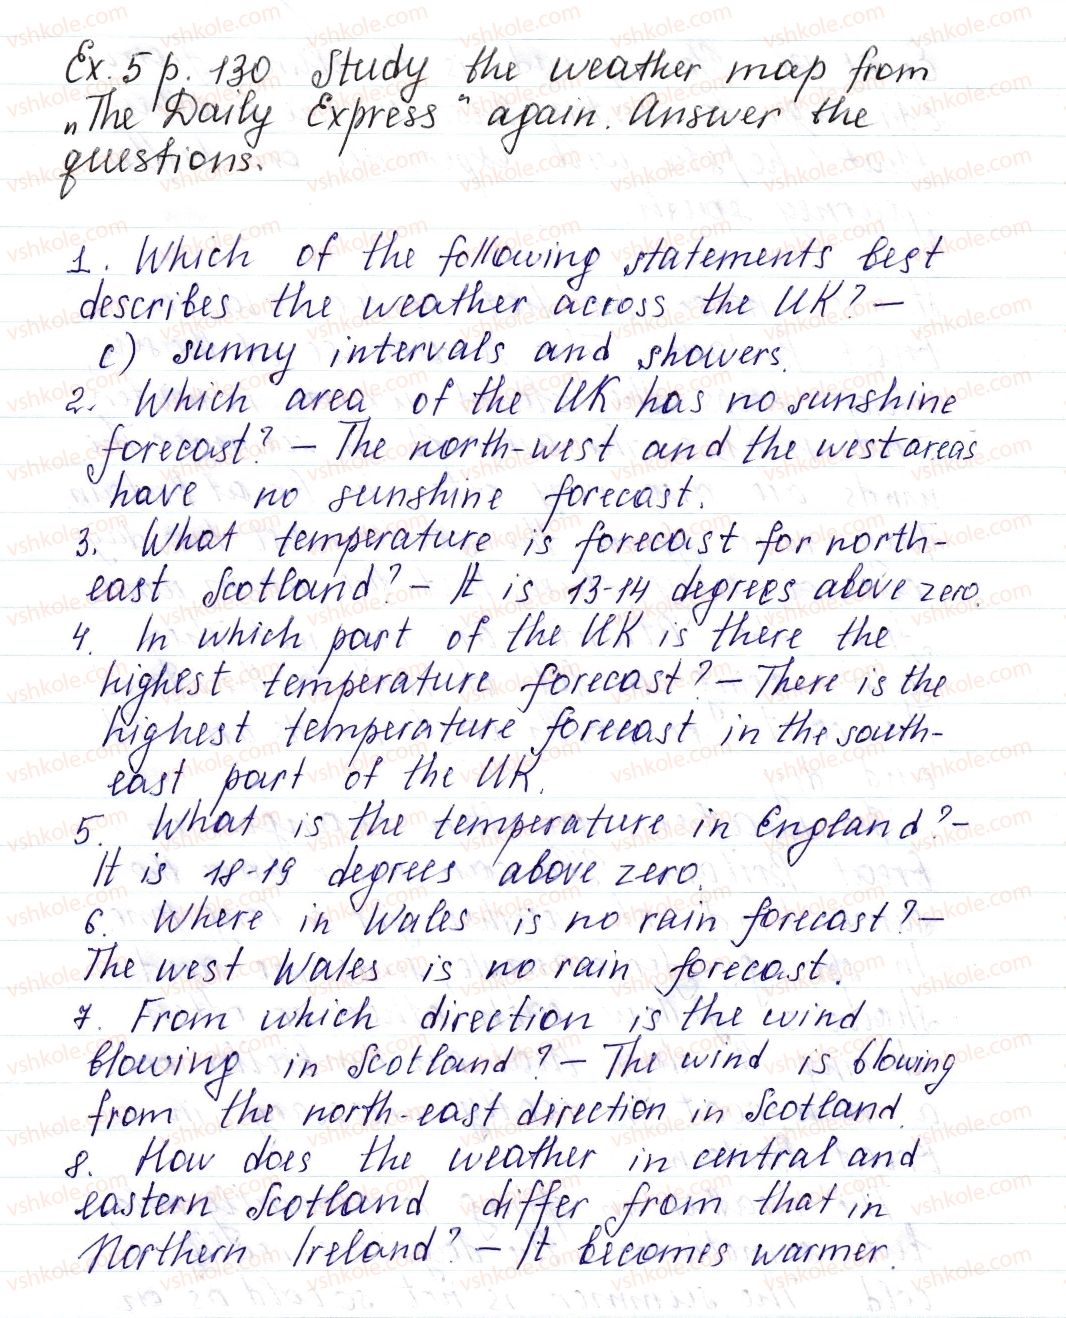 Ex. 5 p. 130 Study the weather map from
„The Daily Express" again. Answer the
questions.
1. Which of the following statements best
describes the weather across the UK? —
c) sunny intervals and showers.
2. Which area of the UK has no sunshine
forecast? — The north-west and the west areas
have no sunshine forecast.
3. What temperature is forecast for north-
east Scotland? — It is 13-14 degrees above zero.
4. In which part of the UK is there the
highest temperature forecast? — There is the
highest temperature forecast in the south-
east part of the UK.
5. What is the temperature in England? —
It is 18-19 degrees above zero.
6. Where in Wales is no rain forecast? —
The west Wales is no rain forecast.
7. From which direction is the wind
blowing in Scotland? — The wind is blowing
from the north-east direction in Scotland.
8. How does the weather in central and
eastern Scotland differ from that in
Northern Ireland? — It becomes warmer.
vshkole.com